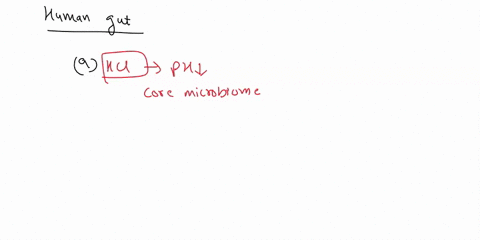 Human gut
(a) HCl → pH↓
Core microbiome